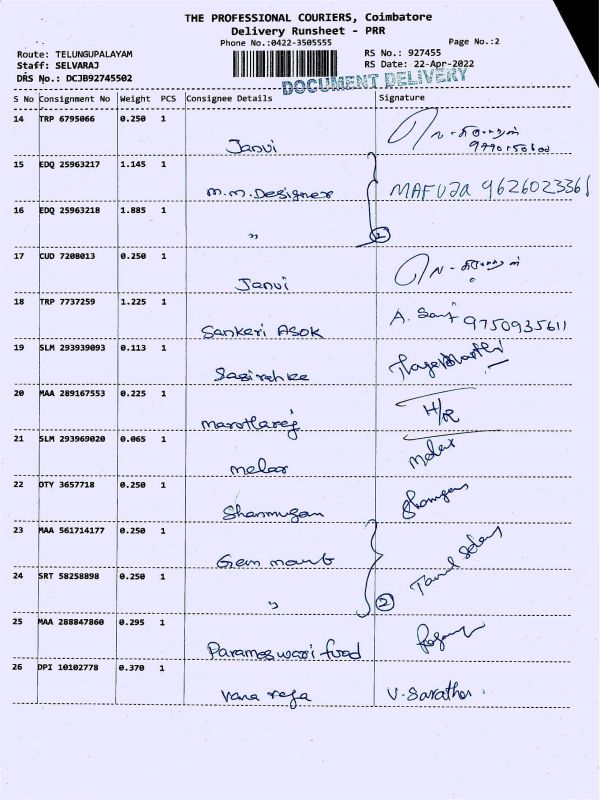 THE PROFESSIONAL COURIERS, Coimbatore
Delivery Runsheet - PRR
Phone No.:0422-3505555
Page No.:2
Route: TELUNGUPALAYAM
RS No.: 927455
Staff: SELVARAJ
RS Date: 22-Apr-2022
DRS No.: DCJB92745502
DOCUMENT DELIVERY
S No Consignment No Weight PCS Consignee Details Signature
14 TRP 6795066 0.250 1
Janvi
15 EDQ 25963217 1.145 1
M.M.Designer MAFUJA 9626023361
16 EDQ 25963218 1.885 1
" 2
17 CUD 7208013 0.250 1
Janvi
18 TRP 7737259 1.225 1
Sankari ASOK A. 9750935611
19 SLM 293939093 0.113 1
20 MAA 289167553 0.225 1
H/R
21 SLM 293969020 0.065 1
22 DTY 3657718 0.250 1
Shanmugan
23 MAA 561714177 0.250 1
Gem
24 SRT 58258898 0.250 1
" 2
Tamil
25 MAA 288847860 0.295 1
Parameswari food
26 DPI 10102778 0.370 1
Vana reja V. Sarathor